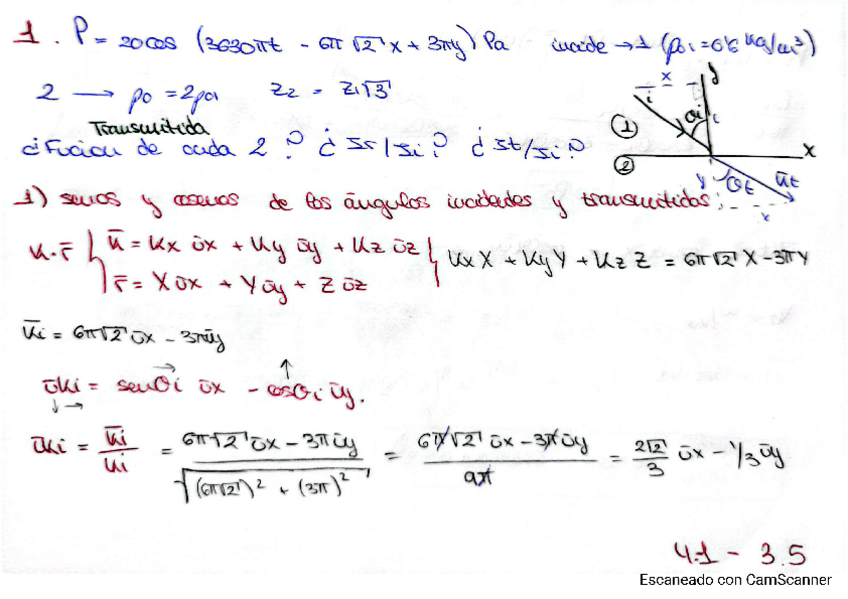 1. P = 20cos (3630πt - 6π√2 x + 3πy) Pa incide → 1 (ρ01 = 0'6 kg/m³)
2 → ρ0 = 2ρ01 Z2 = Z1√3
Transmitida
¿Función de onda 2? ¿Sr/Si? ¿St/Si?
x y i θi ① ② x y θt ūt x
1) senos y cosenos de los ángulos incidentes y transmitidos:
k·r̄ { k̄ = Kx ūx + Ky ūy + Kz ūz
r̄ = X ūx + Y ūy + Z ūz } KxX + KyY + KzZ = 6π√2 X - 3πY
k̄i = 6π√2 ūx - 3πūy
ūki = senθi ūx - cosθi ūy.
ūki = k̄i / ki = (6π√2 ūx - 3πūy) / √((6π√2)² + (3π)²) = (6π√2 ūx - 3πūy) / 9π = 2√2/3 ūx - 1/3 ūy
4.1 - 3.5
Escaneado con CamScanner